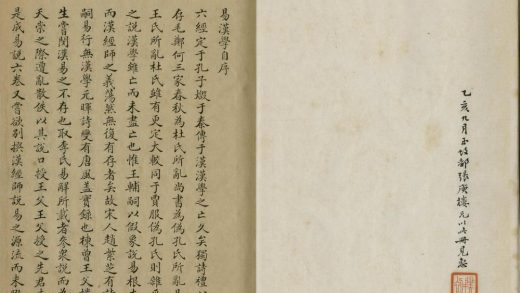 乙亥九月玉坡張庾樓兄以此冊見
易漢學自序
六經定于孔子燬于秦傳于漢漢學之亡久矣獨詩禮
存毛鄭何三家春秋為杜氏所亂尚書為偽孔氏所亂
王氏所亂杜氏雖有更定大較同于賈服偽孔氏則雜
之說漢學雖亡而未盡亡也惟王輔嗣以假象說易根
而漢經師之義蕩然無復有存者矣故宋人趙紫芝有
嗣易行無漢學元暉詩變有唐風蓋實錄也棟曾王父
生嘗閔漢易之不存也取李氏易解所載者參眾說而
天崇之際遭亂散佚以其說口授王父王父授之先君
是成易說六卷又嘗欲別撰漢經師說易之源流而未